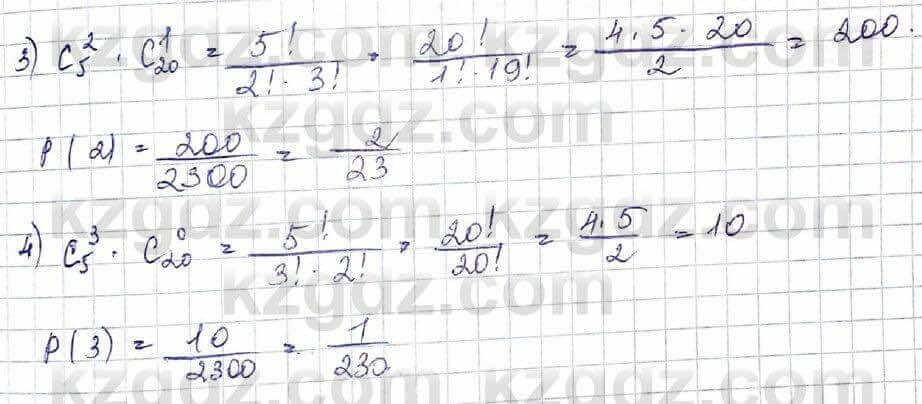 3) C₅² · C₂₀¹ = 5!/(2! · 3!) · 20!/(1! · 19!) = (4 · 5 · 20)/2 = 200.
P(2) = 200/2300 = 2/23
4) C₅³ · C₂₀⁰ = 5!/(3! · 2!) · 20!/20! = (4 · 5)/2 = 10
P(3) = 10/2300 = 1/230
kzgdz.com
kzgdz.com
kzgdz.com
kzgdz.com
kzgdz.com